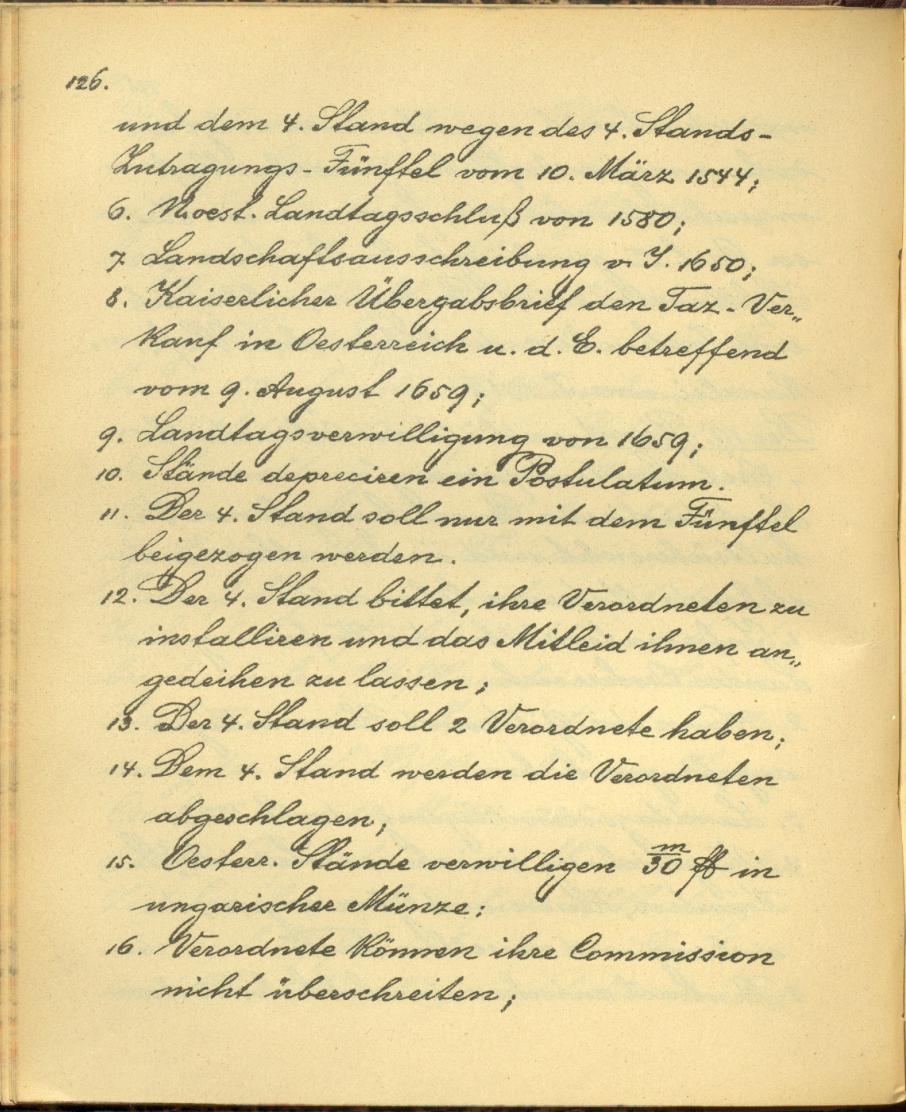 126.
und dem 4. Stand wegen des 4. Stands-
Zutragungs-Fünftel vom 10. März 1544;
6. N.oest. Landtagsschluß von 1580;
7. Landschaftsausschreibung v. J. 1650;
8. Kaiserlicher Übergabsbrief den Taz-Ver„
kauf in Oesterreich u. d. E. betreffend
vom 9. August 1659;
9. Landtagsverwilligung von 1659;
10. Stände depreciren ein Postulatum.
11. Der 4. Stand soll nur mit dem Fünftel
beigezogen werden.
12. Der 4. Stand bittet, ihre Verordneten zu
installiren und das Mitleid ihnen an„
gedeihen zu lassen;
13. Der 4. Stand soll 2 Verordnete haben;
14. Dem 4. Stand werden die Verordneten
abgeschlagen;
15. Oesterr. Stände verwilligen m/30 ℔ in
ungarischer Münze;
16. Verordnete können ihre Commission
nicht überschreiten;